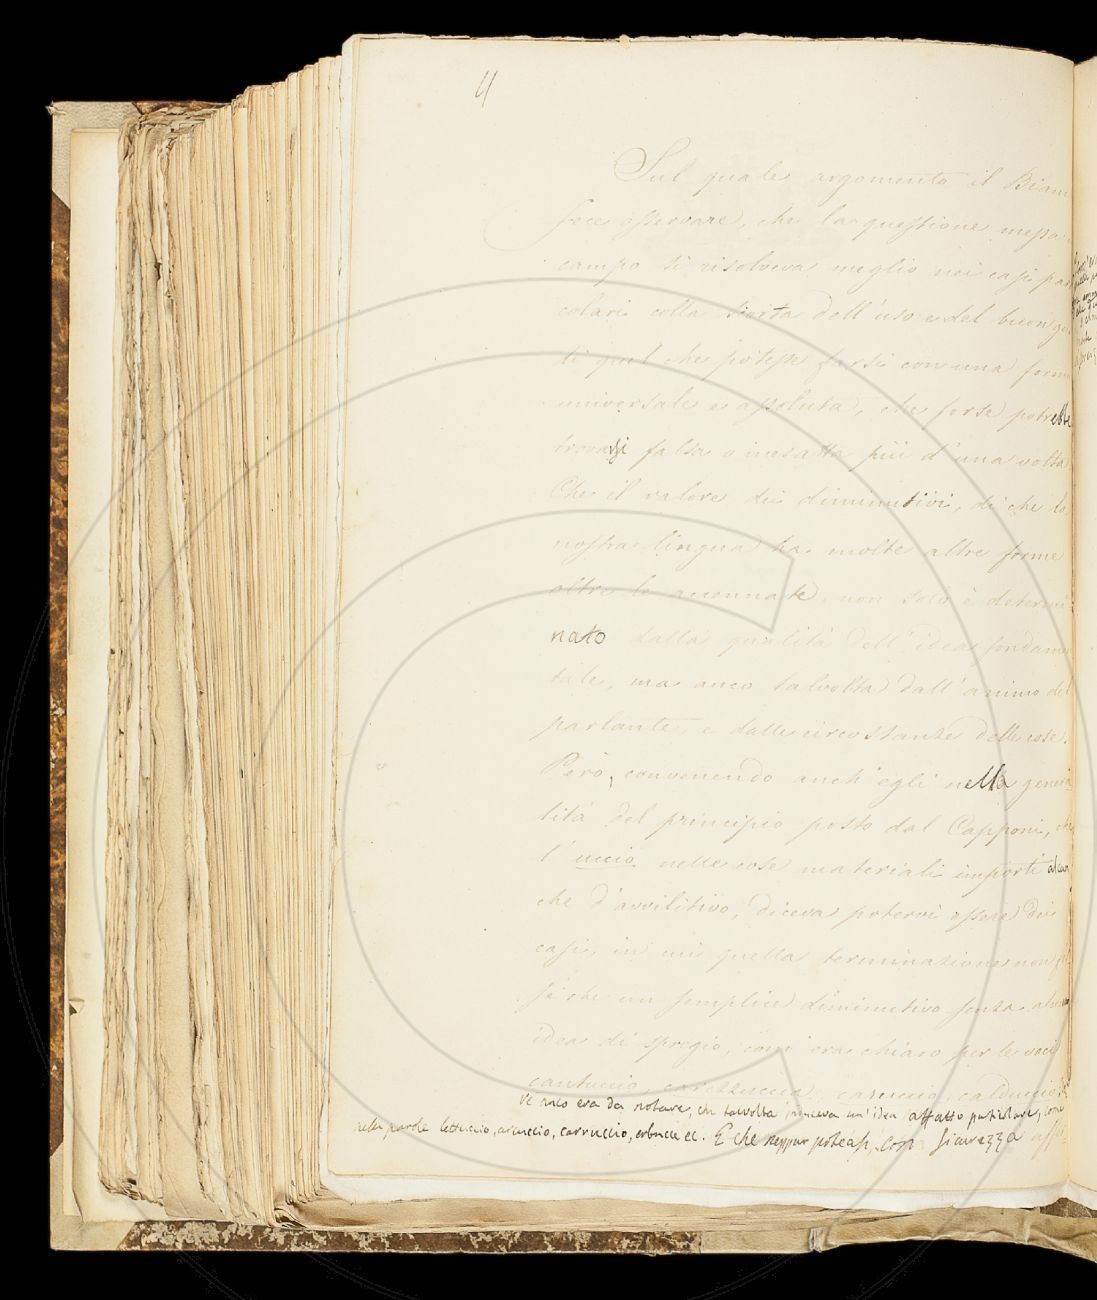 Sul quale argomento il Bian
fece osservare, che la questione messa
campo si risolveva meglio nei casi par
colari colla scorta dell'uso e del buon gu
di quel che potesse farsi con una form
universale e assoluta, che forse potrebbe
trovarsi falsa o inesatta più d'una volta
Che il valore dei diminutivi, di che la
nostra lingua ha molte altre forme
oltre le accennate, non solo è determi
nato dalla qualità dell'idea fondam
tale, ma anco talvolta dall'animo del
parlante, e dalle circostanze delle cose.
Però, convenendo anch'egli nella genera
lità del principio posto dal Capponi, che
l'uccio nelle cose materiali importi alcun
che d'avvilitivo, diceva potervi essere dei
casi, in cui quella terminazione non
sia che un semplice diminutivo senza alcuna
idea di spregio, com'era chiaro per le voci
cantuccio, carezzuccia, casuccia, calduccio
Ve anco era da notare, che talvolta un'idea affatto particolare, come
nelle parole lettuccio, arcuccio, carruccio, ec. E che neppur poteasi con sicurezza